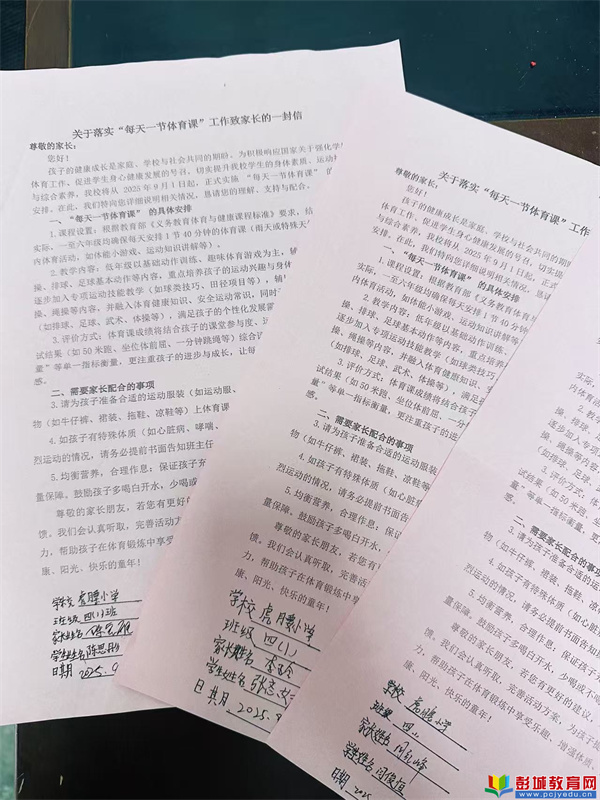 关于落实“每天一节体育课”工作致家长的一封信
尊敬的家长:
您好!
孩子的健康成长是家庭、学校与社会共同的期盼。为积极响应国家关于强化学
体育工作、促进学生身心健康发展的号召,切实提升我校学生的身体素质、运动技
与综合素养,我校将从 2025 年 9 月 1 日起,正式实施 “每天一节体育课” 的
安排。在此,我们特向您详细说明相关情况,恳请您的理解、支持与配合。
一、“每天一节体育课” 的具体安排
1.课程设置:根据教育部《义务教育体育与健康课程标准》要求,结
实际,一至六年级均确保每天安排 1 节 40 分钟的体育课(雨天或特殊天
内体育活动,如体能小游戏、运动知识讲解等)。
2.教学内容:低年级以基础动作训练、趣味体育游戏为主,辅
操、排球、足球基本动作等内容,重点培养孩子的运动兴趣与身体
逐步加入专项运动技能教学(如球类技巧、田径项目等),
操、绳操等内容,并融入体育健康知识、安全运动常识,同时
(如排球、足球、武术、体操等),满足孩子的个性化发展需
3.评价方式:体育课成绩将结合孩子的课堂参与度、
试结果(如 50 米跑、坐位体前屈、一分钟跳绳等)综合
量”等单一指标衡量,更注重孩子的进步与成长,让每
感。
二、需要家长配合的事项
3.请为孩子准备合适的运动服装(如运动服、
物(如牛仔裤、裙装、拖鞋、凉鞋等)上体育课
4.如孩子有特殊体质(如心脏病、哮喘、
烈运动的情况,请务必提前书面告知班主任
5.均衡营养,合理作息:保证孩子充
量保障。鼓励孩子多喝白开水,少喝或
尊敬的家长朋友,若您有更好
馈。我们会认真听取,完善活动方
力,帮助孩子在体育锻炼中享受
康、阳光、快乐的童年!
学校 虎腰小学
班级 四(1)班
家长姓名
学生姓名 陈思彤
日期 2025.9
关于落实“每天一节体育课”工作
尊敬的家长:
您好!
孩子的健康成长是家庭、学校与社会共同的期
体育工作、促进学生身心健康发展的号召,切实提
与综合素养,我校将从 2025 年 9 月 1 日起,正式
安排。在此,我们特向您详细说明相关情况,恳请
一、“每天一节体育课” 的具体安排
1.课程设置:根据教育部《义务教育体
实际,一至六年级均确保每天安排 1 节 40 分
内体育活动,如体能小游戏、运动知识讲解等
2.教学内容:低年级以基础动作训练、
操、排球、足球基本动作等内容,重点培养
逐步加入专项运动技能教学(如球类技巧
操、绳操等内容,并融入体育健康知识、
(如排球、足球、武术、体操等),满足
3.评价方式:体育课成绩将结合孩子
试结果(如 50 米跑、坐位体前屈、一
量”等单一指标衡量,更注重孩子的进
感。
二、需要家长配合的事项
3.请为孩子准备合适的运动服装
物(如牛仔裤、裙装、拖鞋、凉鞋等
4.如孩子有特殊体质(如心脏
烈运动的情况,请务必提前书面
5.均衡营养,合理作息:保证
量保障。鼓励孩子多喝白开水,
尊敬的家长朋友,若您
馈。我们会认真听取,完善
力,帮助孩子在体育锻炼中
康、阳光、快乐的童年!
学校 虎腰小学
班级 四(1)
家长姓名
学生姓名
日期 2025.
实际,
内体育活
2.教
操、排球、
逐步加入
操、绳操等
(如排球、足
3.评价方式:
试结果(如 50 米跑
量”等单一指标衡量
感。
二、需要家长配合的事
3.请为孩子准备合适的
物(如牛仔裤、裙装、拖鞋、
4.如孩子有特殊体质(如
烈运动的情况,请务必提前书面告
5.均衡营养,合理作息:保证
量保障。鼓励孩子多喝白开水,少喝或不
尊敬的家长朋友,若您有更好的建议,
馈。我们会认真听取,完善活动方案,为孩子提
力,帮助孩子在体育锻炼中享受乐趣、增强体质、
康、阳光、快乐的童年!
学校 虎腰小学
班级 四(1)
家长姓名
学生姓名 闫俊恒
日期 2025
彭城教育网
www.pcjyedu.cn